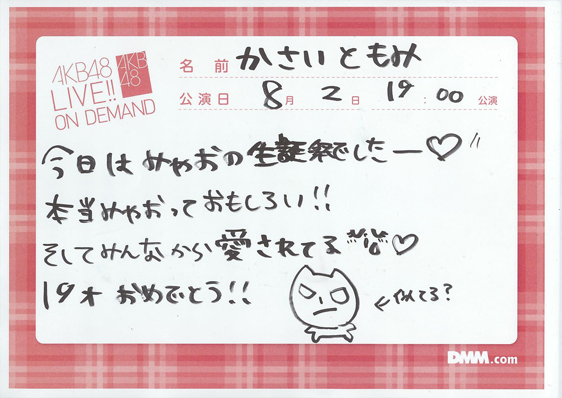 AKB48
LIVE!!
ON DEMAND
AKB
48
名前 かさいともみ
公演日 8月2日 19:00公演
今日はみやおの生誕祭でしたー♡
本当みやおっておもしろい!!
そしてみんなから愛されてる♡
19才 おめでとう!!
←似てる?
DMM.com